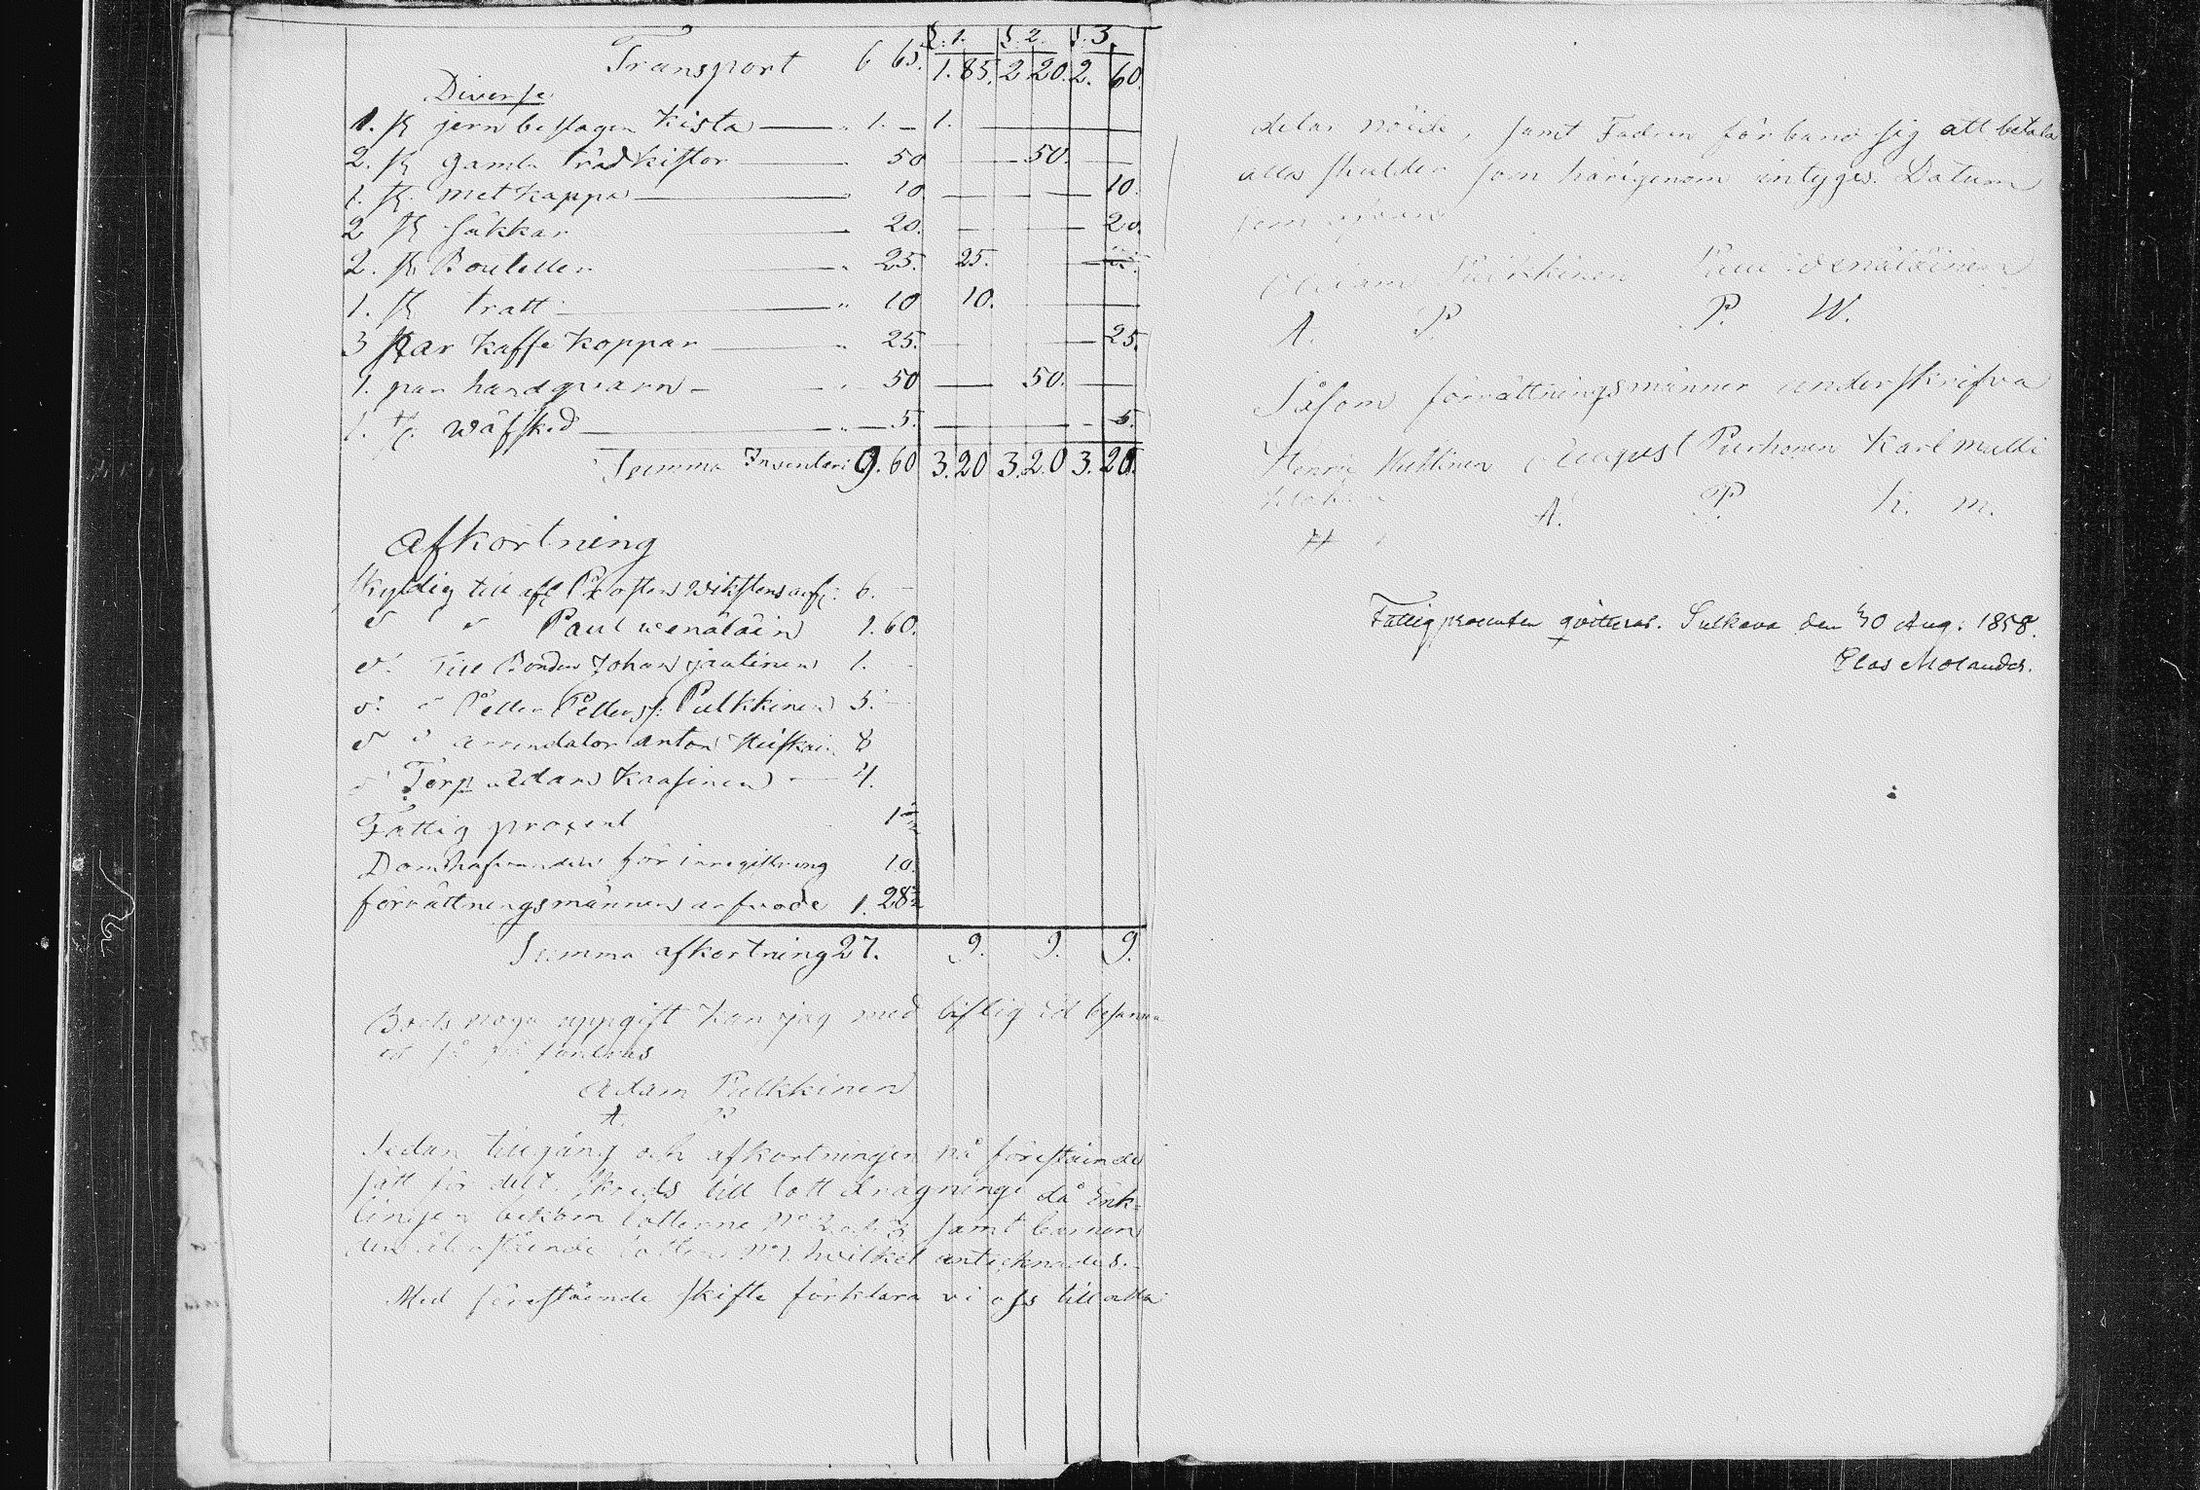 L. 1. L. 2. L. 3.
Transport 6 65. 1. 85. 2. 20. 2. 60.
Diverse
1. st jern beslagen Kista 1. — 1.
2. st gamla träd kistor 50 50.
1. st. met kappa 10 10.
2 st säkkar 20. 20.
2. st. Bouteller 25. 25.
1. st tratt 10 10.
3 par Kaffe Koppar 25. 25.
1. par handqvarn 50 50.
1. st. wäfsked 5. 5.
Summa Inventari 9. 60 3. 20 3. 20 3. 20.
Afkortning
Skyldig till afl Prosten Wikstens arf: 6. —
d° " Paul wenäläin 1. 60.
d° Till Bonden Johan 1. —
d° d° Petter Petterss: Pulkkinen 5. —
d° d° arrendator Anton 8
d° Torp Adam Kaasinen 4.
Fattig procent
Domhafvanden för inregistrering 10.
förrättningsmännens arfvode 1. 28
Summa afkortning 27. 9. 9. 9.
Boets noga uppgift kan jag med liflig Ed besanna
om så fordras
Adam Pulkkinen
A. P.
Sedan tillgång och afkortningen på förestående
sätt för delt, skreds till lott dragning då Enk-
lingen bekom lotterne N° 2 och 3 samt barnen
den återstående lotten N° 1. hvilket antecknades.
Med förestående skifte förklara vi oss till alla
delar nöide, samt Fadren förband sig att betala
alla skulder som harigenom intygas. Datum
som ofvan
Adam Pulkkinen Paul Wenäläinen
A. P. P. W.
Såsom förrättningsmänner underskrifva
Henric August Purhonen Karl
H A. P. K. m.
Fattigprocenten qvitteras. Sulkava den 30 Aug. 1858.
Clas Molander.